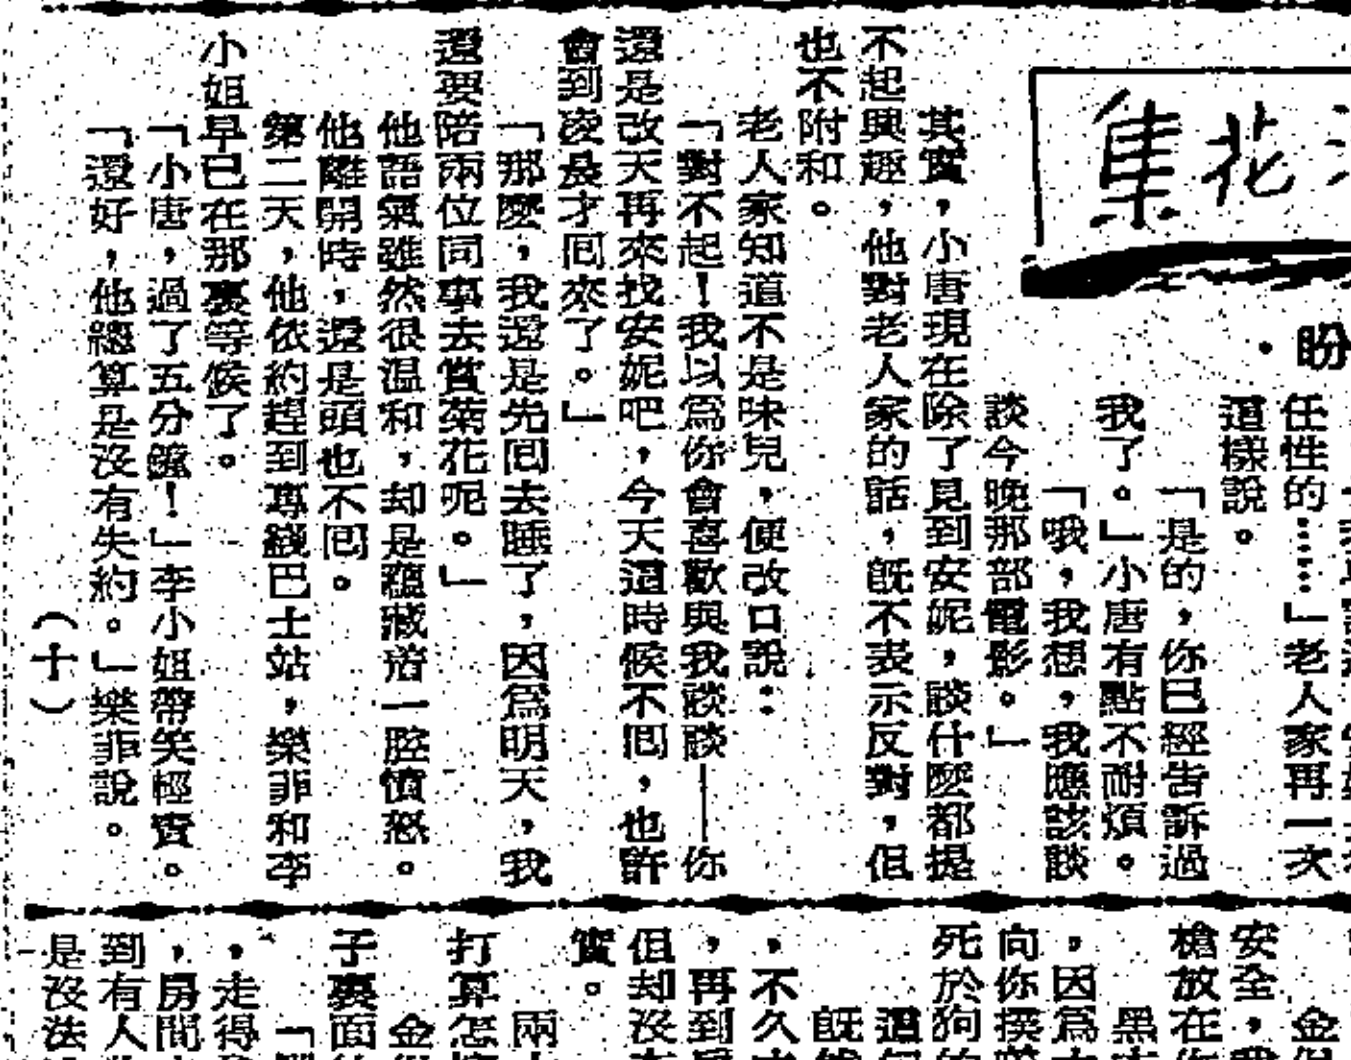 花集
盼·
任性的……」老人家再一次
這樣說。
「是的，你已經告訴過
我了。」小唐有點不耐煩。
「哦，我想，我應該談
談今晚那部電影。」
其實，小唐現在除了見到安妮，談什麼都提
不起興趣，他對老人家的話，旣不表示反對，但
也不附和。
老人家知道不是味兒，便改口說：
「對不起！我以爲你會喜歡與我談談——你
還是改天再來找安妮吧，今天這時候不囘，也許
會到凌晨才囘來了。」
「那麼，我還是先囘去睡了，因爲明天，我
還要陪兩位同事去賞菊花呢。」
他語氣雖然很温和，却是蘊藏着一腔憤怒。
他離開時，還是頭也不囘。
第二天，他依約趕到專綫巴士站，樂菲和李
小姐早已在那裏等候了。
「小唐，過了五分鐘！」李小姐帶笑輕責。
「還好，他總算是沒有失約。」樂菲說。
（十）
金
安全，
槍放在
黑
，因爲
向你撲
死於狗
這
旣
，不久
，再到
但却沒
實。
兩
打算怎
金
子裏面
「
，走得
，房間
到有人
是沒法